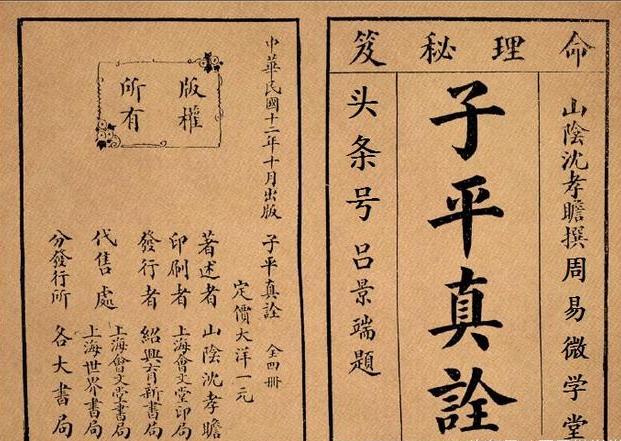 命理秘笈
山陰沈孝瞻撰周易微学堂
子平真詮
头条号吕景端題
版權
所有
中華民國十二年十月出版
子平真詮 全四冊
定價大洋一元
著述者 山陰沈孝瞻
印刷者 上海會文堂印局
發行者 紹興育新書局
代售處 上海會文堂書局
上海世界書局
分發行所 各大書局